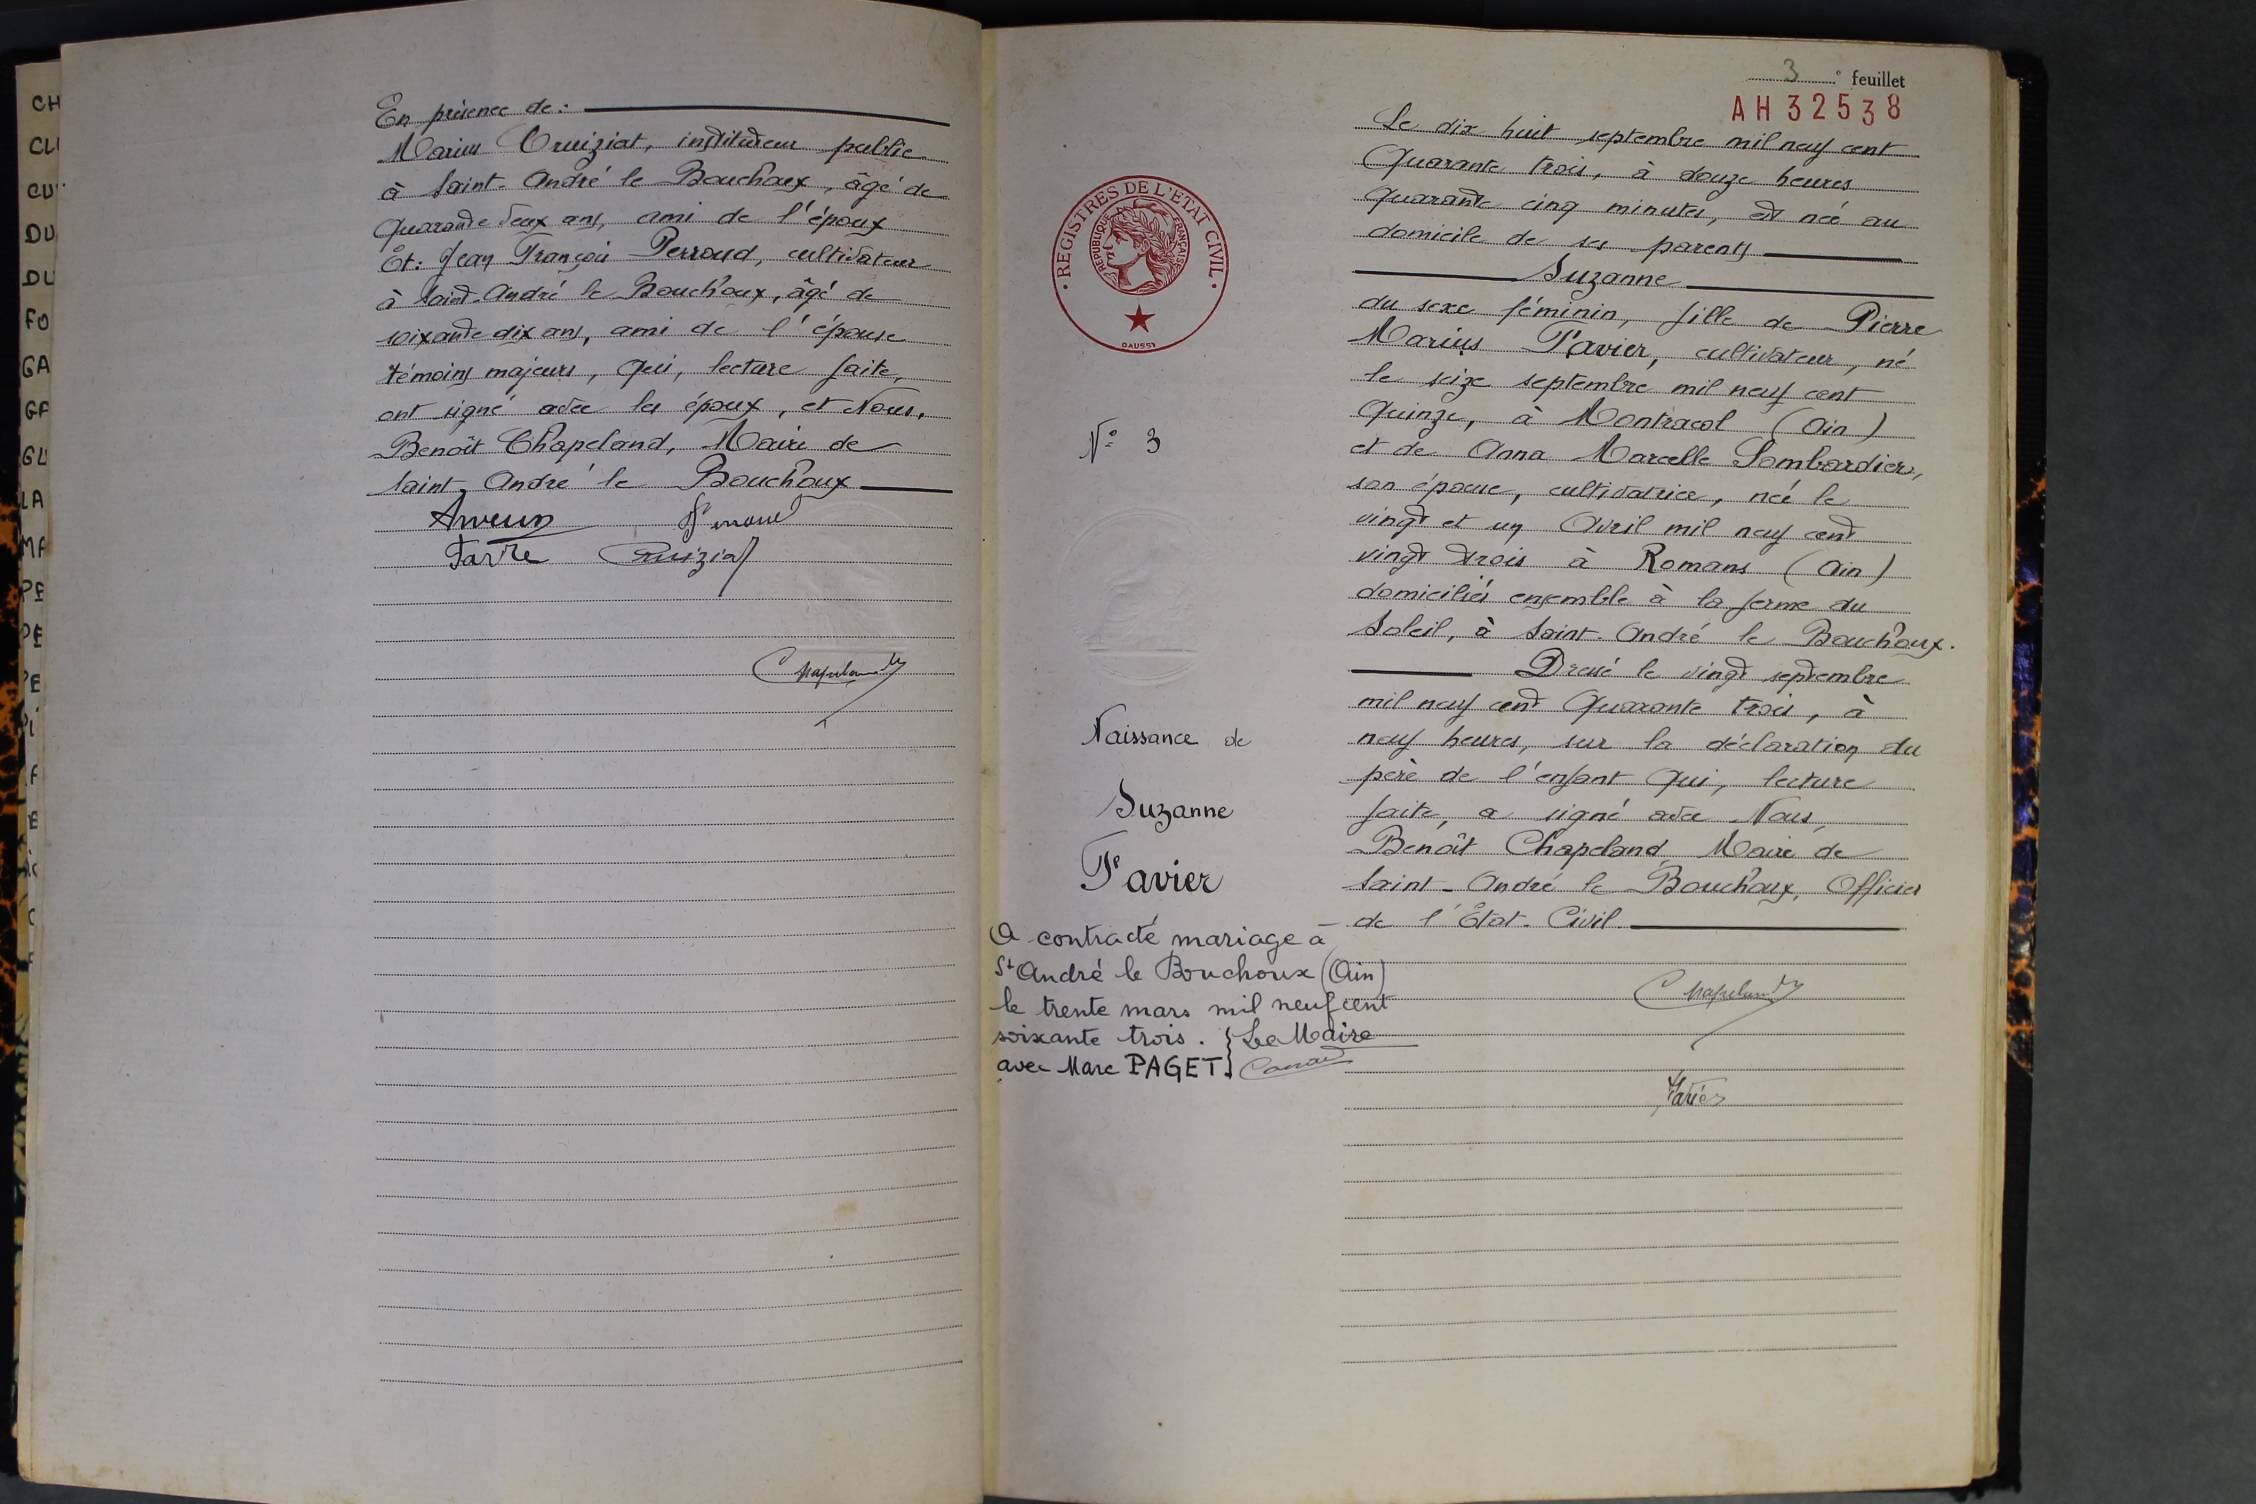 CH
CL
CU
DU
DU
FO
GA
GA
GU
LA
MA
PE
PE
PE
En présence de :
Marius Cruiziat, instituteur public
à Saint-André le Bouchoux, âgé de
quarante deux ans, ami de l'époux
Et : Jean François Perroud, cultivateur
à Saint-André le Bouchoux, âgé de
soixante dix ans, ami de l'épouse
témoins majeurs, qui, lecture faite,
ont signé avec les époux, et Nous,
Benoît Chapeland, Maire de
Saint André le Bouchoux
Favre Cruiziat
Chapeland
3e feuillet
AH32538
REGISTRES DE L'ETAT CIVIL
REPUBLIQUE FRANÇAISE
DAUSSY
N° 3
Naissance de
Suzanne
Favier
A contracté mariage à
St André le Bouchoux (Ain)
le trente mars mil neuf cent
soixante trois.
avec Marc PAGET.
Le Maire
Le dix huit septembre mil neuf cent
Quarante trois, à douze heures
quarante cinq minutes, est née au
domicile de ses parents
Suzanne
du sexe féminin, fille de Pierre
Marius Favier, cultivateur, né
le seize septembre mil neuf cent
Quinze, à Montracol (Ain)
et de Anna Marcelle Lombardier,
son épouse, cultivatrice, née le
vingt et un Avril mil neuf cent
vingt trois à Romans (Ain)
domiciliés ensemble à la ferme du
Soleil, à Saint-André le Bouchoux.
Dressé le vingt septembre
mil neuf cent Quarante trois, à
neuf heures, sur la déclaration du
père de l'enfant qui, lecture
faite, a signé avec Nous,
Benoît Chapeland Maire de
Saint-André le Bouchoux, Officier
de l'État-Civil.
Chapeland
Favier